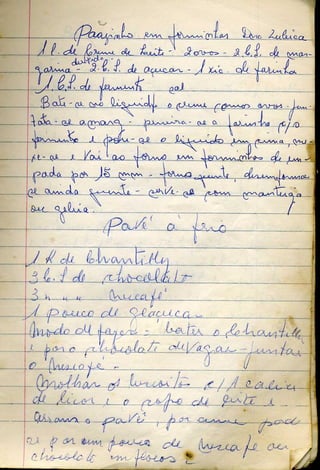 Pãozinho em forminhas Dona Zuleica
1 l. de Creme de Leite - 2 ovos - 2 C.S. de mar-
garina derretida - 2 C.S. de açucar - 1 xic. de farinha
1 C.S. de fermento sal
Bate-se no liquidif. o creme com os ovos - jun-
ta-se a marg. - peneira-se a farinha c/o
fermento e põe-se o liquido em cima,
e-se e vai ao forno em forminhas de em-
pada por 15 min - forno quente, desenforma-
se ainda quente - serve-se com manteiga
ou geleia.
Pavê a frio
1 K de Chantilly
3 C.S de chocolate
3 " " " nescafé
1 pouco de glaçucar
Modo de fazer = bater o Chantilly
e por o chocolate devagar - juntar
o nescafé -
Molhar os biscoitos c/ 1 calice
de licor e o copo de leite e
arruma o pavê, por cima pod
se por um pouco de nescafé ou
chocolate em flocos =